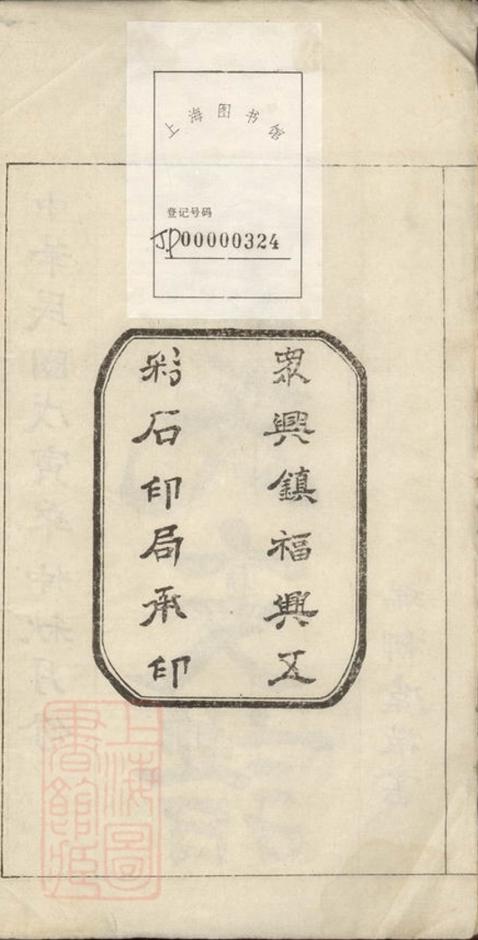 上海图书馆
登记号码
JP00000324
眾興鎮福興五
彩石印局承印
上海圖
書館藏